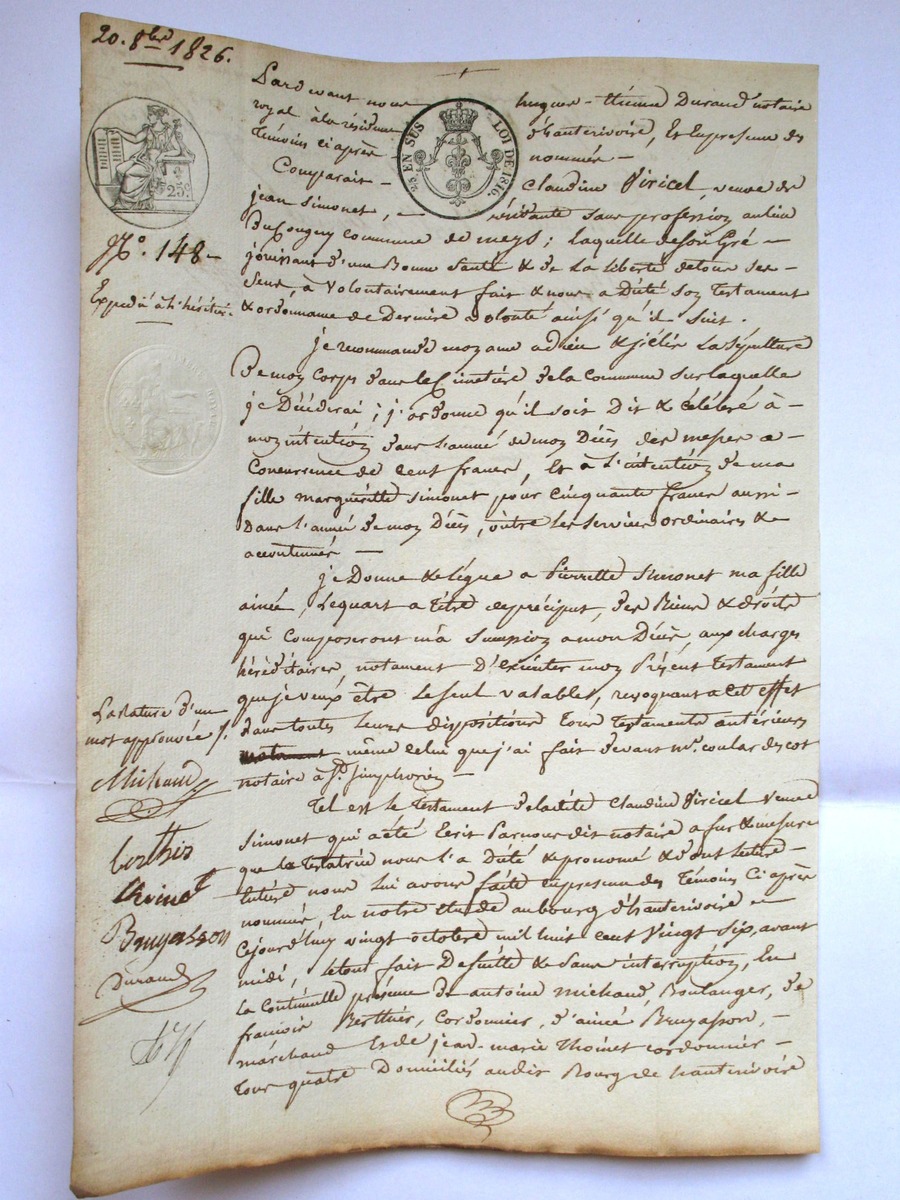 20. 8bre 1826.
Pardevant nous hugues-étienne Durand notaire
royal à la résidence d'hauterivoire, Et En presence des
témoins ci après nommés —
Comparait — Claudine Viricel, veuve de
jean Simonet, — résidante sans profession au lieu
Du Cougny commune de meys; laquelle de son Gré —
jouissant d'une Bonne Santé & de La liberté de tous ses —
Sens, à volontairement fait & nous a Dicté Son Testament
& ordonnance de Derniere volonté ainsi qu'il suit.
je recommande mon ame a dieu & j'élis La Sépulture
De mon corps dans le Cimetière de la commune sur laquelle
je Décéderai; j'ordonne qu'il soit Dit & célébré à —
mon intention dans l'année de mon Décès des messes a —
Concurrence de cent francs, Et à L'intention de ma
fille margueritte Simonet, pour cinquante francs aussi —
Dans l'année de mon Décès, outre les services ordinaires &
accoutumés —
je Donne & lègue a Pierrette Simonet ma fille
ainée, Le quart a titre de préciput, des Biens & droits
qui composeront ma Succession a mon Décès, aux charges
héréditaires notament D'éxécuter mon Présent Testament
que je veux être le seul valable, revoquant a cet effet
dans toutes leurs dispositions tous Testaments antérieurs
même celui que j'ai fait devant me. coulas descot
notaire à St. Simphorien —
Tel est le Testament de la dite Claudine Viricel veuve
Simonet qui a été Ecrit Par nous dit notaire a fur & mesure
que la testatrice nous l'a Dicté & prononcé & dont lecture —
Entière nous lui avons faite En presence des Témoins Ci après
nommés, En notre étude au bourg d'hauterivoire —
Cejourd'huy vingt octobre mil huit cent Vingt Six, avant
midi, Le tout fait De suitte & Sans interruption, En
La continuelle présence de antoine michaud, Boulanger, de
francois Berthier, Cordonnier, d'aimé Bruyasson, —
marchand Et de jean-marie Thoinet cordonnier —
Tous quatre Domiciliés au dit Bourg de hauterivoire
25 EN SUS
LOI DE 1816.
25c.
No. 148 —
Expédié à l'héritière.
La rature d'un
mot approuvée /.
Michaud
berthier
thoinet
Bruyasson
Durand